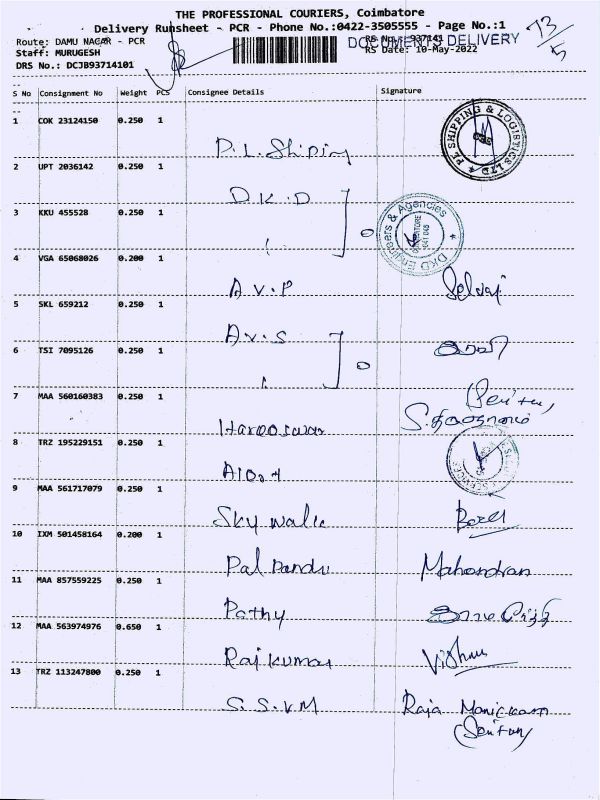 THE PROFESSIONAL COURIERS, Coimbatore
Delivery Runsheet - PCR - Phone No.:0422-3505555 - Page No.:1
Route: DAMU NAGAR - PCR
DOCUMENTS DELIVERY
Staff: MURUGESH
RS Date: 10-May-2022
DRS No.: DCJB93714101
73/5
S No Consignment No Weight PCS Consignee Details Signature
1 COK 23124150 0.250 1
P.L. Shiping
PL SHIPPING & LOGISTICS LTD
2 UPT 2036142 0.250 1
D.K.D
3 KKU 455528 0.250 1
DKD Engineers & Agencies
4 VGA 65068026 0.200 1
A.V.P Selvaj
5 SKL 659212 0.250 1
A.V.S
6 TSI 7095126 0.250 1
7 MAA 560160383 0.250 1
8 TRZ 195229151 0.250 1
9 MAA 561717079 0.250 1
Sky walk
10 IXM 501458164 0.200 1
Pal Pandi Mahendran
11 MAA 857559225 0.250 1
Pathy
12 MAA 563974976 0.650 1
Rajkumar Vishnu
13 TRZ 113247800 0.250 1
S.S.V.M Raja Manickam